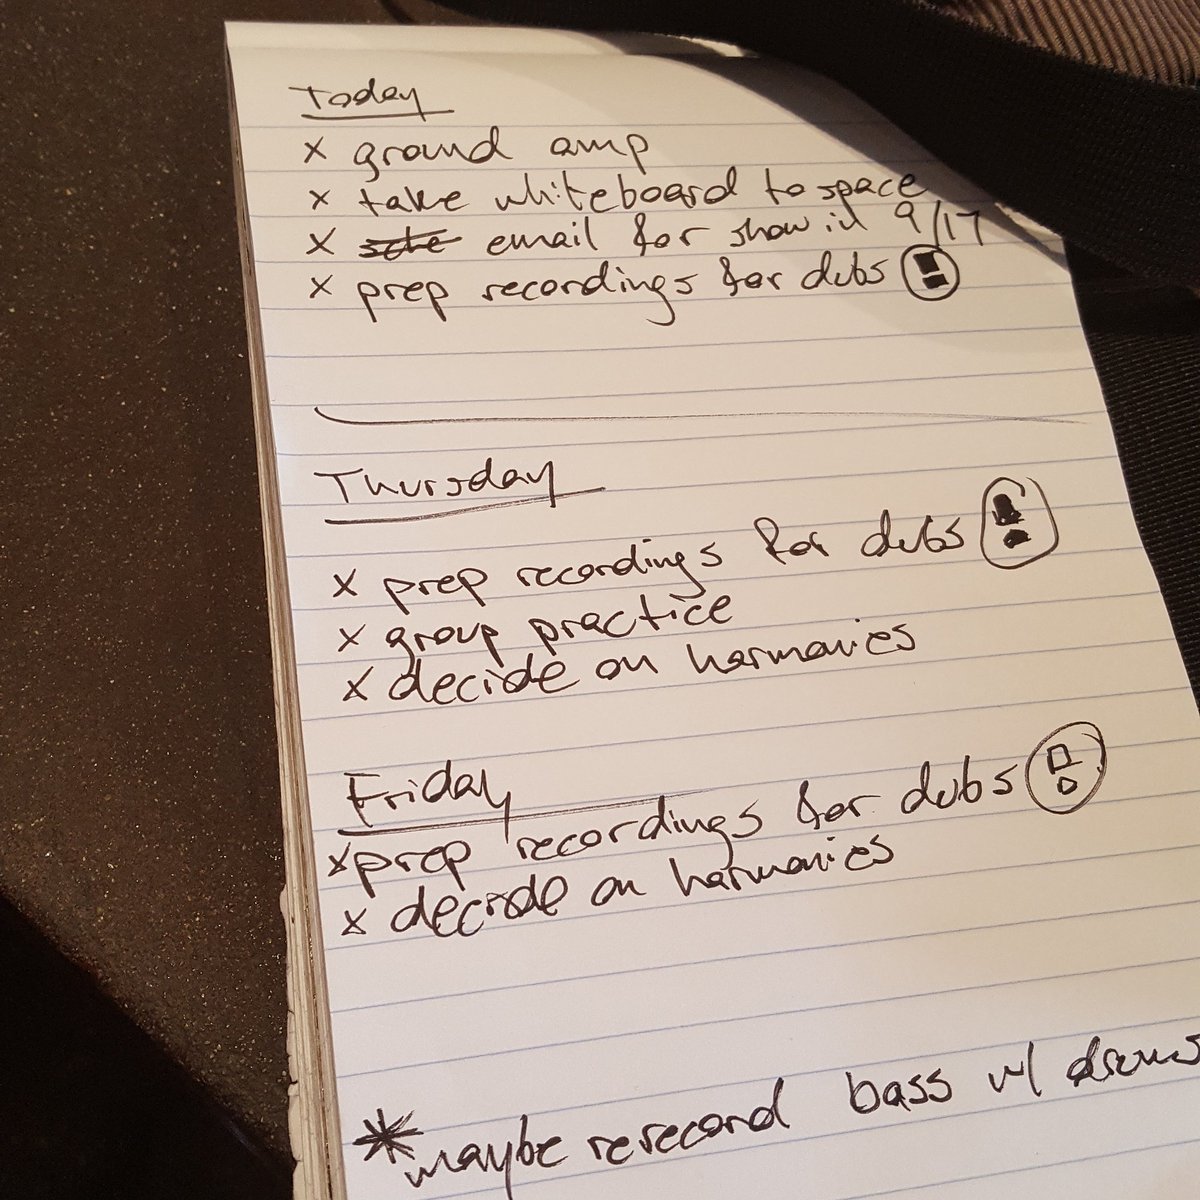 Today
x ground amp
x take whiteboard to space
x email for show in 9/17
x prep recordings for dubs !
Thursday
x prep recordings for dubs !
x group practice
x decide on harmonies
Friday
x prep recordings for dubs !
x decide on harmonies
* maybe rerecord bass w/ drums